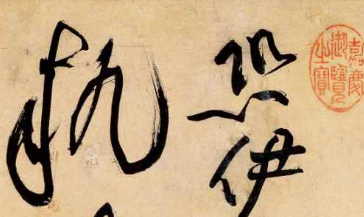 嘉慶
御覽
之寶
恐伊
執